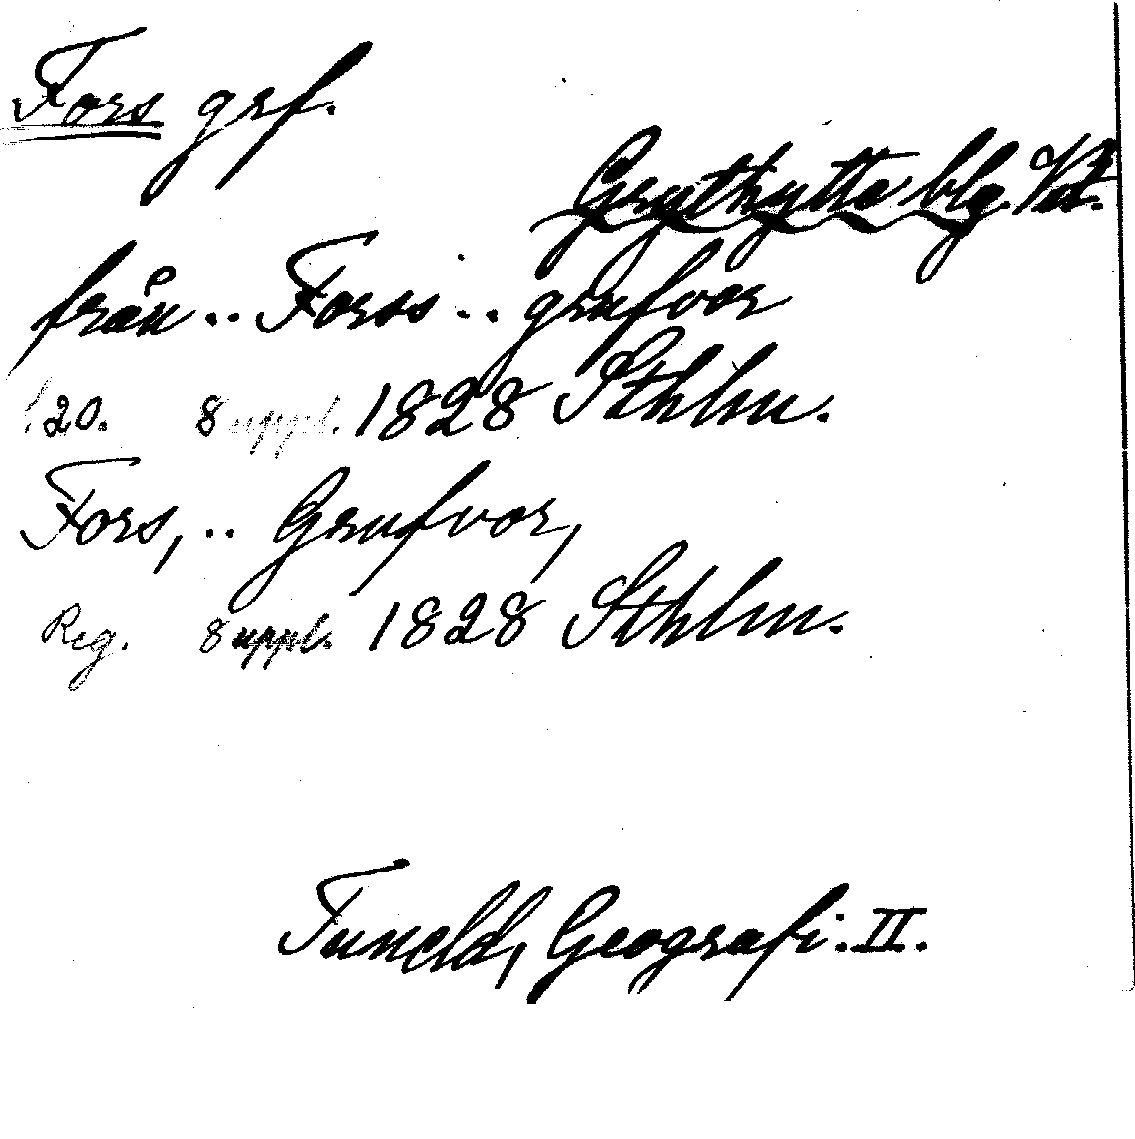 Fors grf.
Grythytte blg. Vst.
från .. Forss .. grufvor
120. 8 uppl. 1828 Sthlm.
Fors, .. Grufvor,
Reg. 8 uppl. 1828 Sthlm.
Tuneld, Geografi. II.